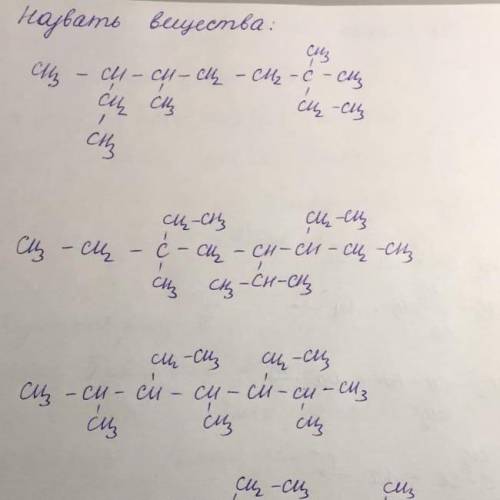 Назвать вещества:
CH3
CH3 - CH - CH - CH2 - CH2 - C - CH3
CH2 CH3 CH2 - CH3
CH3
CH2 - CH3 CH2 - CH3
CH3 - CH2 - C - CH2 - CH - CH - CH2 - CH3
CH3 CH3 - CH - CH3
CH2 - CH3 CH2 - CH3
CH3 - CH - CH - CH - CH - CH - CH3
CH3 CH3 CH3
CH2 - CH3 CH3